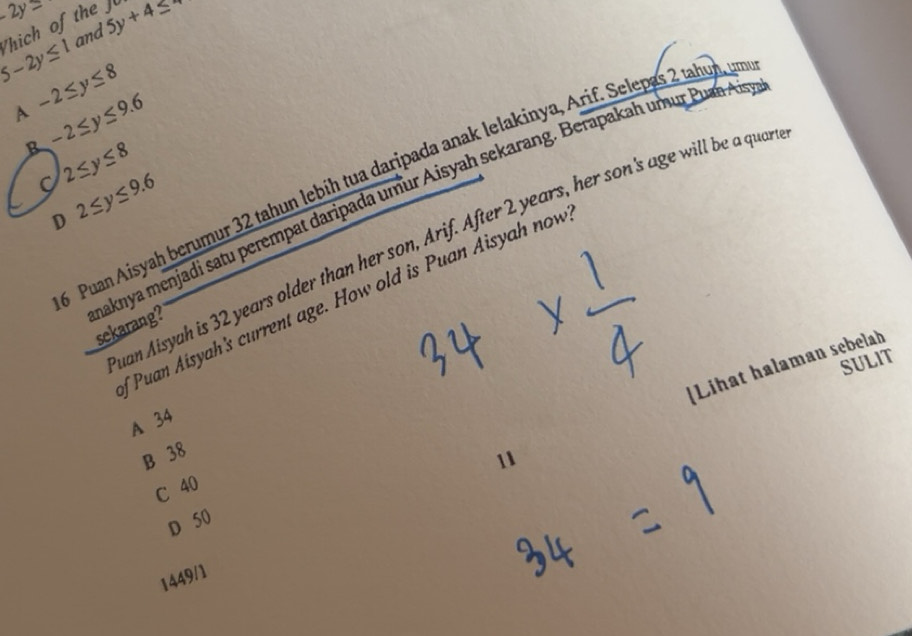 -2y≤
Which of the
5-2y≤1 and 5y+4≤
A -2≤y≤8
B -2≤y≤9.6
C 2≤y≤8
D 2≤y≤9.6
16 Puan Aisyah berumur 32 tahun lebih tua daripada anak lelakinya, Arif. Selepas 2 tahun, umur
anaknya menjadi satu perempat daripada umur Aisyah sekarang. Berapakah umur Puan Aisyah
sekarang?
Puan Aisyah is 32 years older than her son, Arif. After 2 years, her son's age will be a quarter
of Puan Aisyah's current age. How old is Puan Aisyah now?
34 × 1/4
A 34
B 38
C 40
D 50
[Lihat halaman sebelah
SULIT
11
34 = 9
1449/1